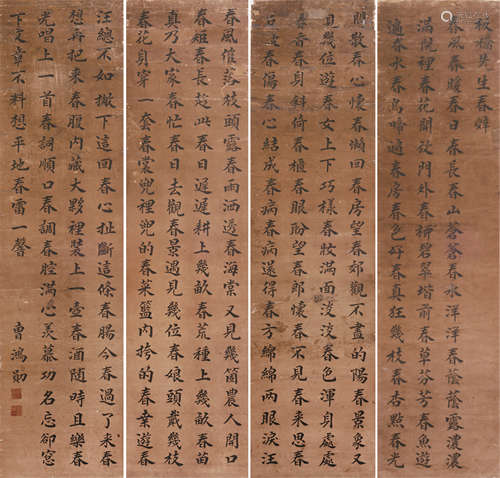 板橋先生春辭
春風春暖春日春長春山蒼蒼春水洋洋春蔭蔭露濃濃
滿院裡春花開放門外春柳碧翠堦前春草芬芳春魚遊
遍春水春鳥啼遍春房春色好春真狂幾枝春杏點春光
閒散春心懷春懶回春房望春郊觀不盡的陽春景象又
見幾位遊春女上下巧樣春妝滿面淡淡春色渾身處處
春香春身斜倚春櫃春眼盼望春郎懷春不見春來思春
占波春傷春心結成春病春病遂得春方綿綿兩眼淚汪
春風倌蕩枝頭露春雨洒透春海棠又見幾箇農人開口
春短春長趁此春日遲遲耕上幾畝春荒種上幾畝春苗
真乃大家春忙春日去觀春景遇見幾位春娘頭戴幾枝
春花身穿一套春裳兜裡兜的春菜籃內挎的春桑遊春
汪總不如撇下這回春心扯斷這條春腸今春過了來春
想再把來春腹內藏大夥裡裝上一壺春酒隨時且樂春
光唱上一首春詞順口春調春腔滿心羨慕功名忘卻窓
下文章不料想平地春雷一聲
曹鴻勛